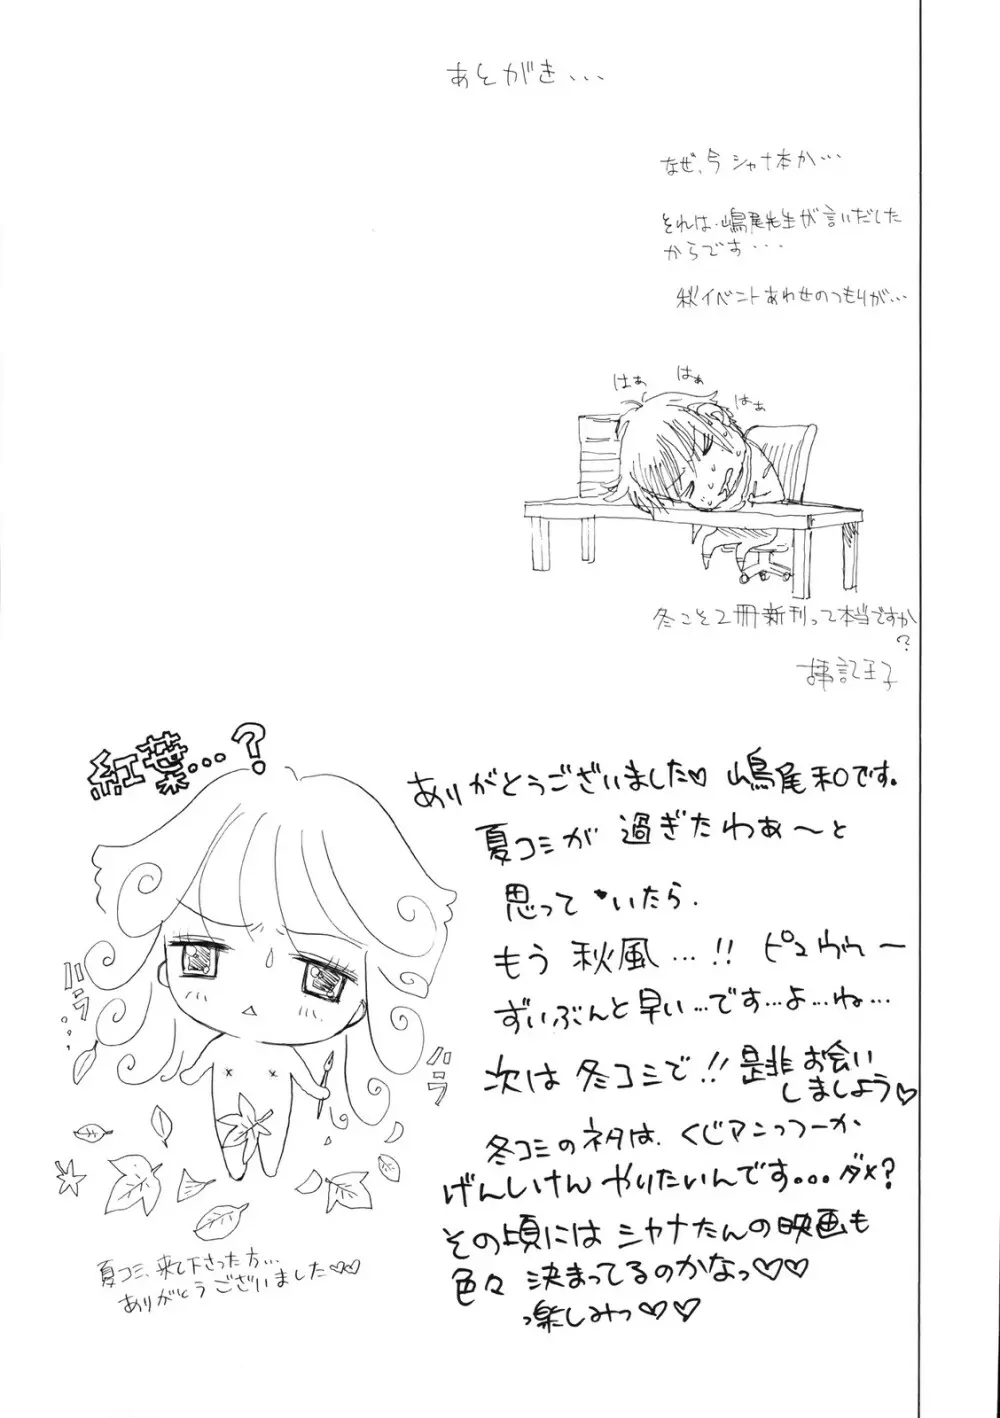 あとがき・・・
なぜ、今シャナ本か・・・
それは・嶋尾先生が言いだした
からです・・・
秋イベントあわせのつもりが・・・
はぁ
はぁ
はぁ
冬こそ2冊新刊って本当ですか
?
記王子
紅葉…?
ありがとうございました♡ 嶋尾和です。
夏コミが 過ぎたわぁ〜と
思って いたら、
もう 秋風…!! ピュウゥー
ずいぶんと早い…です…よ…ね…
次は 冬コミで!! 是非お会い
しましょう♡
冬コミのネタは、くじアンっつーか
げんしけん やりたいんです... ダメ?
その頃には シャナたんの映画も
色々 決まってるのかなっ♡♡
っ楽しみっ♡♡
ハラ
ハラ
夏コミ、来て下さった方…
ありがとうございました♡♡